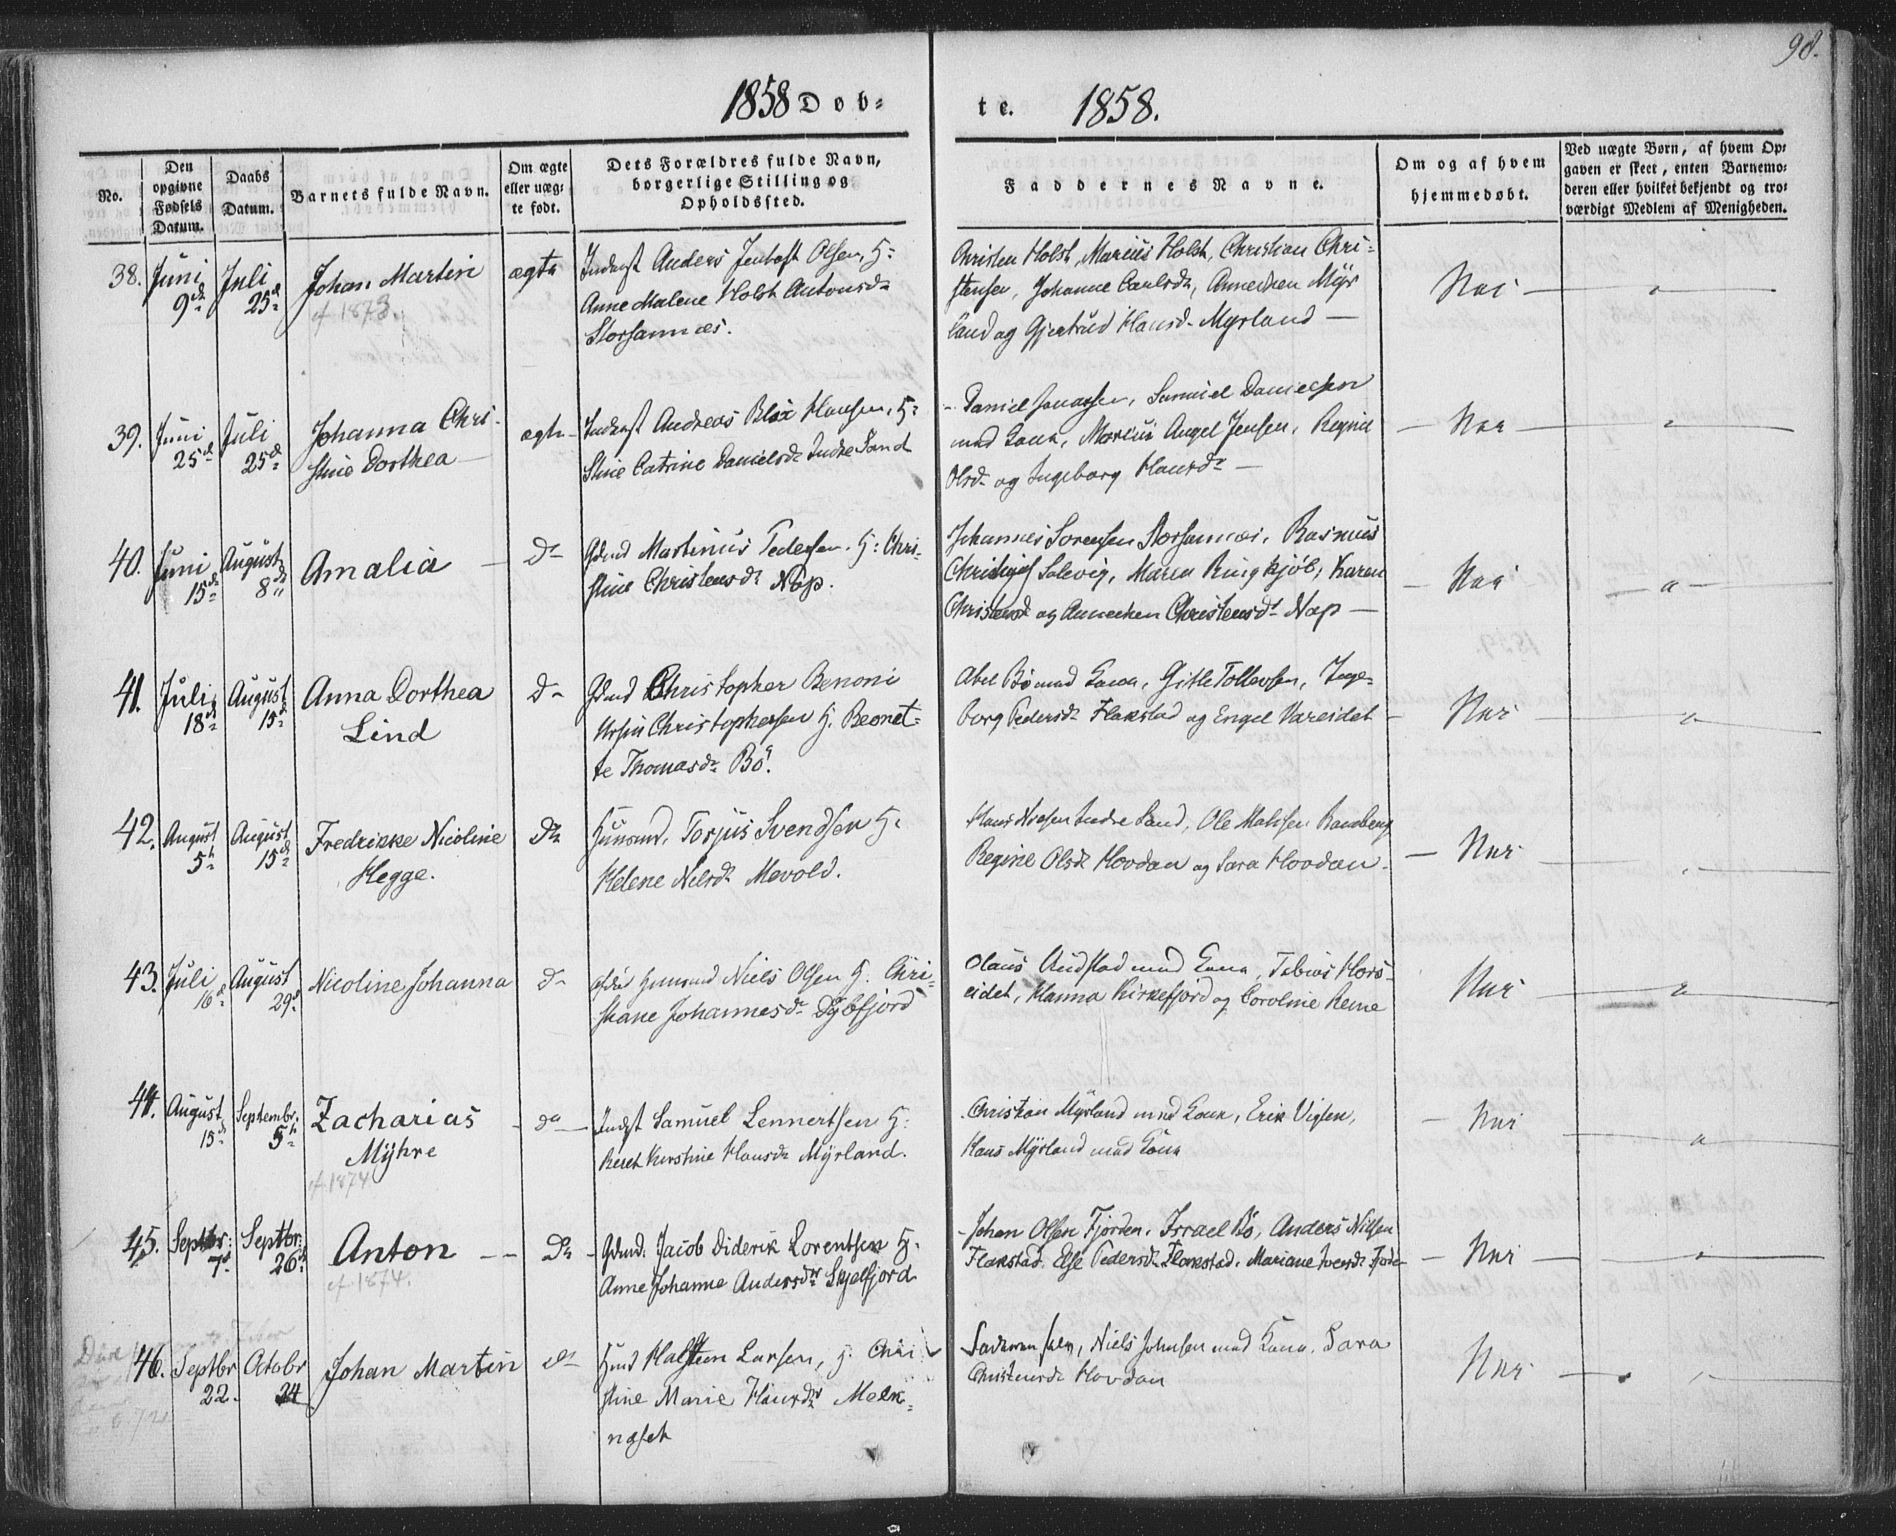 98.
1858 Døb-
te. 1858.
No.
Den opgivne Fødsels Datum.
Daabs Datum.
Barnets fulde Navn.
Om ægte eller uæg-te født.
Dets Forældres fulde Navn, borgerlige Stilling og Opholdssted.
Faddernes Navne.
Om og af hvem hjemmedøbt.
Ved uægte Børn, af hvem Op-
gaven er skeet, enten Barnemo-
deren eller hvilket bekjendt og tro-
værdigt Medlem af Menigheden.
38. Juni 9de Juli 25de Johan Martin ægte
cf 1873.
Anders Jentoft Olsen, H:
Anne Malene Holst Antonsdr
Storsannæs.
Christen Holst, Marius Holst, Christian Chri-
stensen, Johanne Carlsdr, Annecken Myr
land og Gjertrud Hansdr Myrland
Nei
39. Juni 25de Juli 25de Johanna Chri-
stine Dorthea ægte
Andreas Blix Hansen, H:
Stine Catrine Danielsdr Indre Sand
Daniel Jonassen, Samuel Danielsen
med Kone, Marius Angel Jensen, Regine
Olsdr og Ingeborg Hansdr
Nei
40. Juni 15de August 8de Amalia do
Gdmd Martinus Pedersen. H: Chri-
stine Christensdr Nap.
Johannes Sørensen Storsannæs, Rasmus
Solevig, Maren Ringkjøb, Karen
Christensdr og Annecken Christensdr Nap
Nei
41. Juli 18de August 15de Anna Dorthea
Lind do
Gdmd Christopher Benoni
Ursin Christophersen H. Beonet-
te Thomasdr Bø.
Abel Bø med Kone, Gitle Tollevsen, Inge-
borg Pedersdr Flakstad og Engel Vareidet
Nei
42. August 5te August 15de Fredrikke Nicoline
Hegge. do
Huusmd. Torjus Svendsen H.
Helene Nilsdr Mevold.
Hans Indre Sand, Ole Ramberg
Regine Olsdr Hovdan og Sara Hovdan.
Nei
43. Juli 16de August 29de Nicoline Johanna do
Niels Olsen H. Chri-
stiane Johannesdr Dybfjord
Olaus Audstad med Kone, Tobias Hors-
eidet, Hanna Kirkefjord og Caroline Reine
Nei
44. August 15de Septembr. 5te Zacharias
Myhre do
cf. 1874
Indst Samuel Lennertsen H:
Beret Kirstine Hansdr Myrland.
Christian Myrland med Kone, Erik Vigsen,
Hans Myrland med Kone
Nei
45. Septbr: 7de Septbr: 26de Anton do
cf 1874.
Gdmd. Jacob Diderik Lorentsen H.
Anne Johanne Andersdr Skjelfjord
Johan Olsen Fjorden, Israel Bø, Anders Nilsen
Flakstad, Else Pedersdr Flakstad. Mariane Iversdr Fjorden
Nei
46. Septbr 22. Octobr 24 Johan Martin do
Hmd Halsteen Larsen, H. Chri
stine Marie Hansdr Mælk-
næset
Faderen selv, Niels Johnsen med Kone. Sara
Christensdr Hovdan
Nei